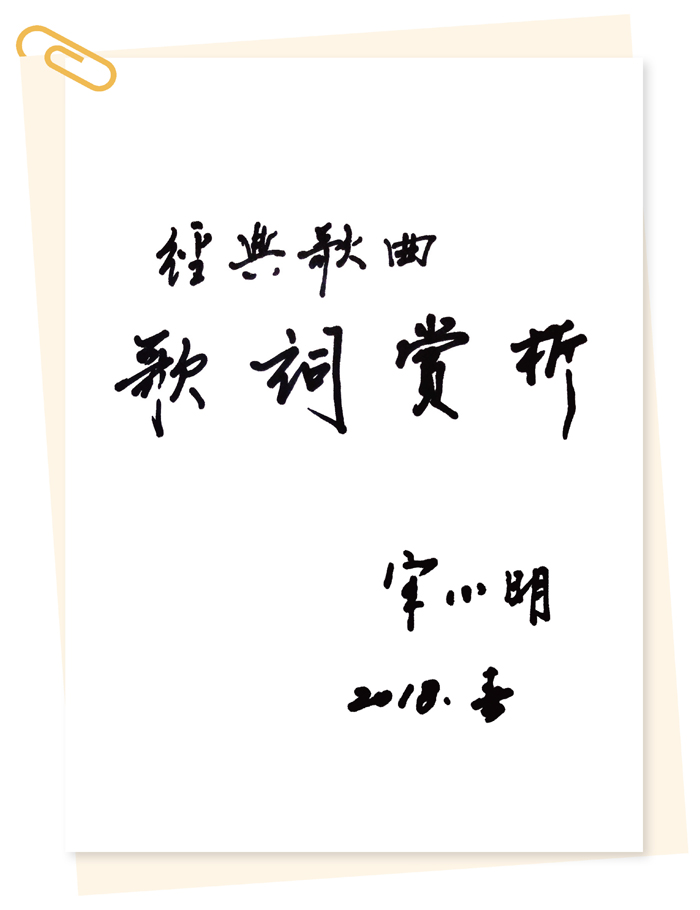 經典歌曲
歌詞賞析
宋小明
2018.春